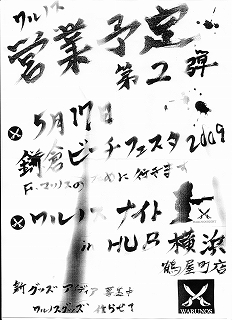 ワルノス
営業予定
第2弾
5月17日
鎌倉ビーチフェスタ2009
F.マリノスのために行きます
ワルノスナイト
in HUB 横浜
鶴屋町店
新グッズ アイディア募集中
ワルノスグッズ 作らせて
WARUNOS